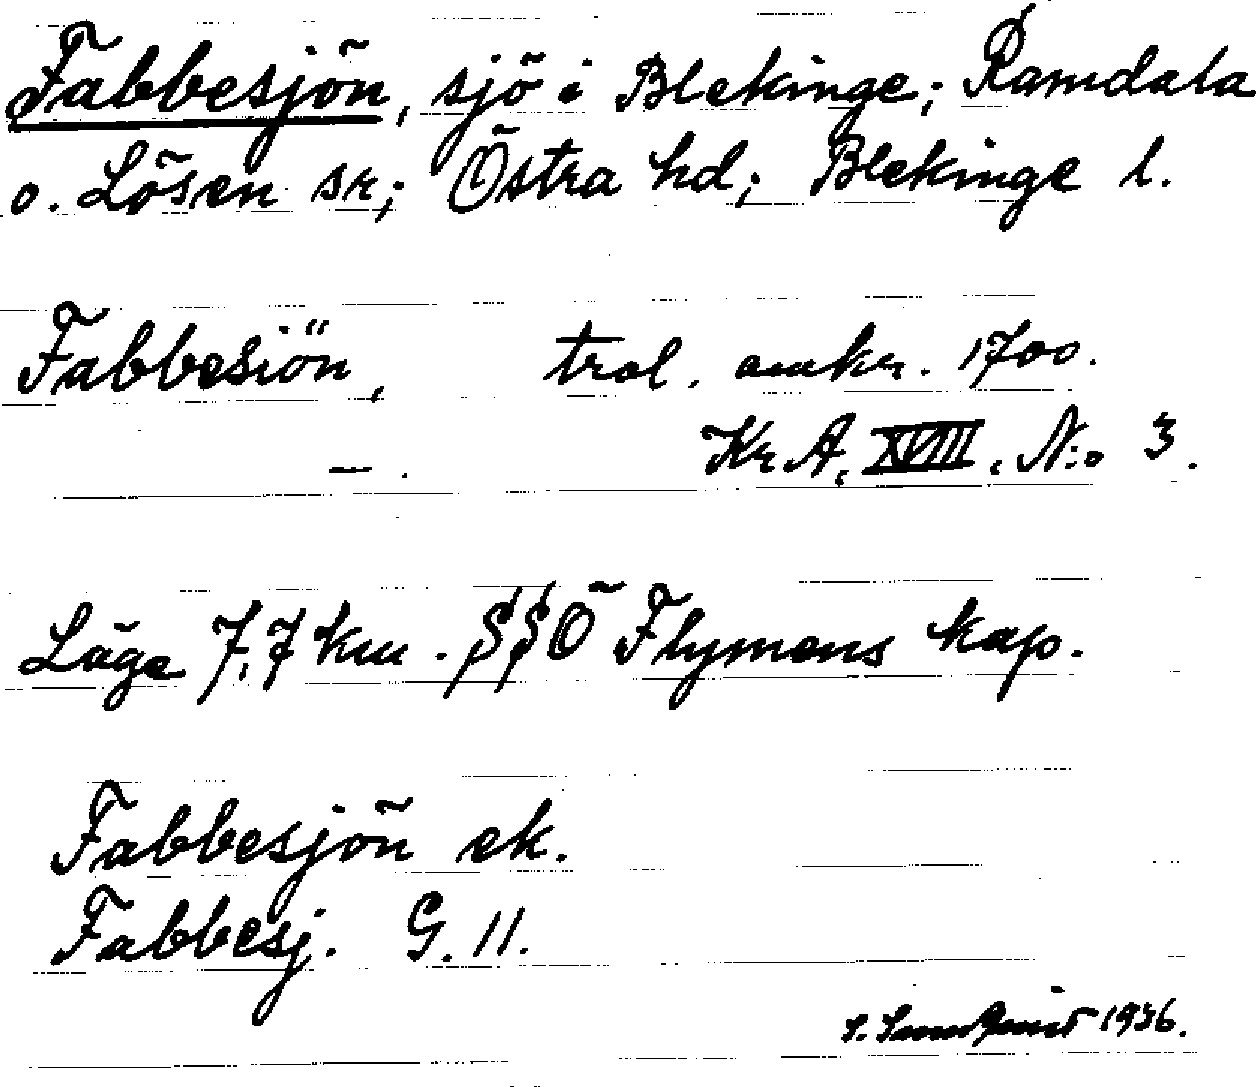 Fabbesjön, sjö i Blekinge; Ramdala
o. Lösen sr; Östra hd; Blekinge l.
Fabbesiön, trol. omkr. 1700.
— . Kr A, XVIII, N:o 3.
Läge 7,7 km. SSÖ Flymens kap.
Fabbesjön ek.
Fabbesj. G. 11.
S. 1936.